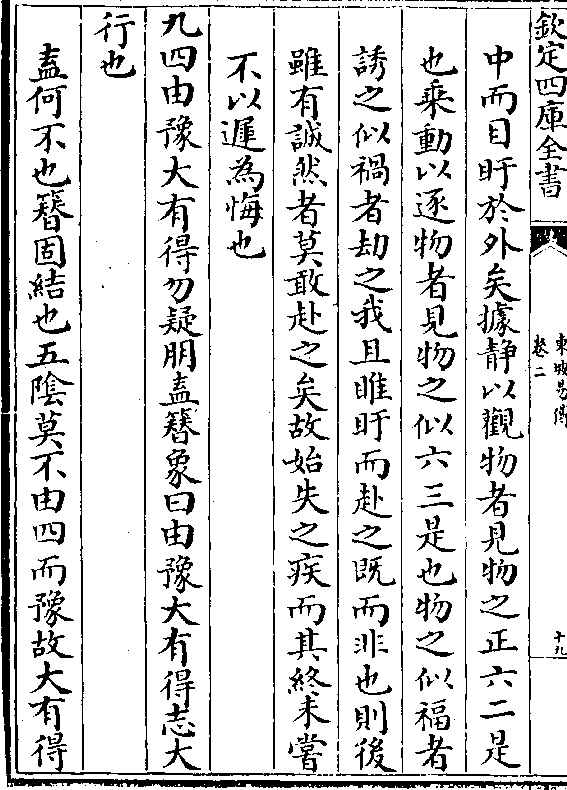 欽定四庫全書
東坡易傳
卷二
十九
中而目盱於外矣據静以觀物者見物之正六二是
也乗動以逐物者見物之似六三是也物之似福者
誘之似禍者劫之我且睢盱而赴之既而非也則後
雖有誠然者莫敢赴之矣故始失之疾而其終未嘗
不以遲為悔也
九四由豫大有得勿疑朋盍簪象曰由豫大有得志大
行也
盍何不也簪固結也五陰莫不由四而豫故大有得